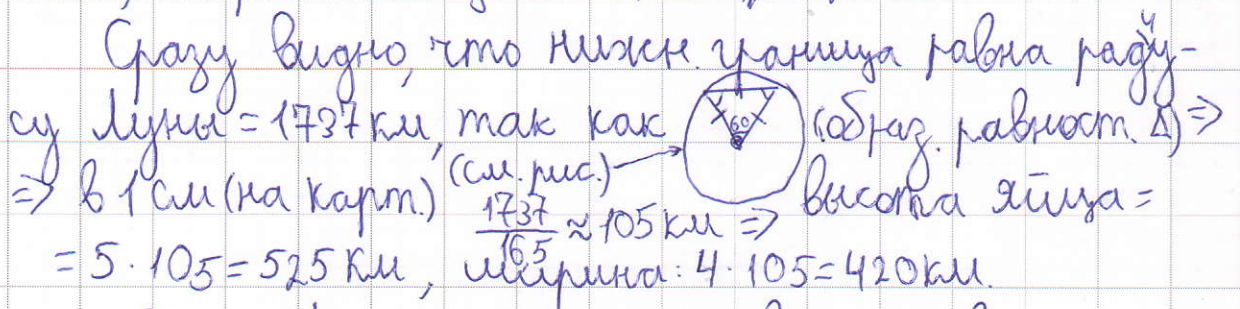 Сразу видно, что нижн. граница равна радиу-
су Луны = 1737 км, так как 60° (образ. равност. Δ) =>
=> в 1 см (на карт.) (см. рис.) 1737/16,5 ≈ 105 км => высота яйца =
= 5 · 105 = 525 км, ширина: 4 · 105 = 420 км.